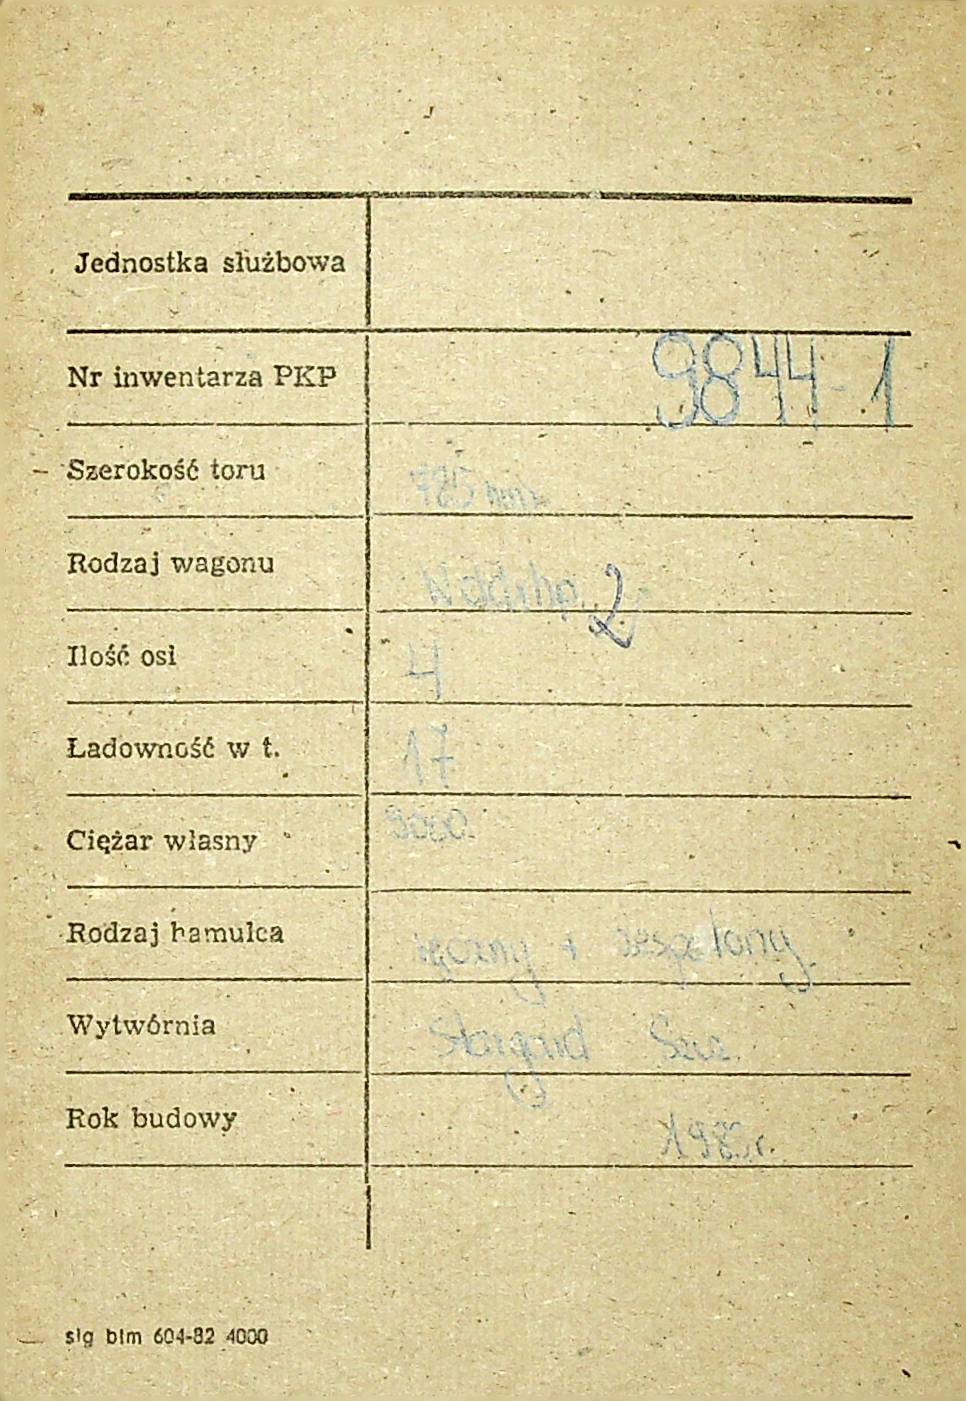 Jednostka służbowa
Nr inwentarza PKP 9844-1
Szerokość toru 785 mm
Rodzaj wagonu 2
Ilość osi 4
Ładowność w t. 17
Ciężar własny
Rodzaj hamulca ręczny + zespolony
Wytwórnia Stargard Szcz.
Rok budowy
slg blm 604-82 4000